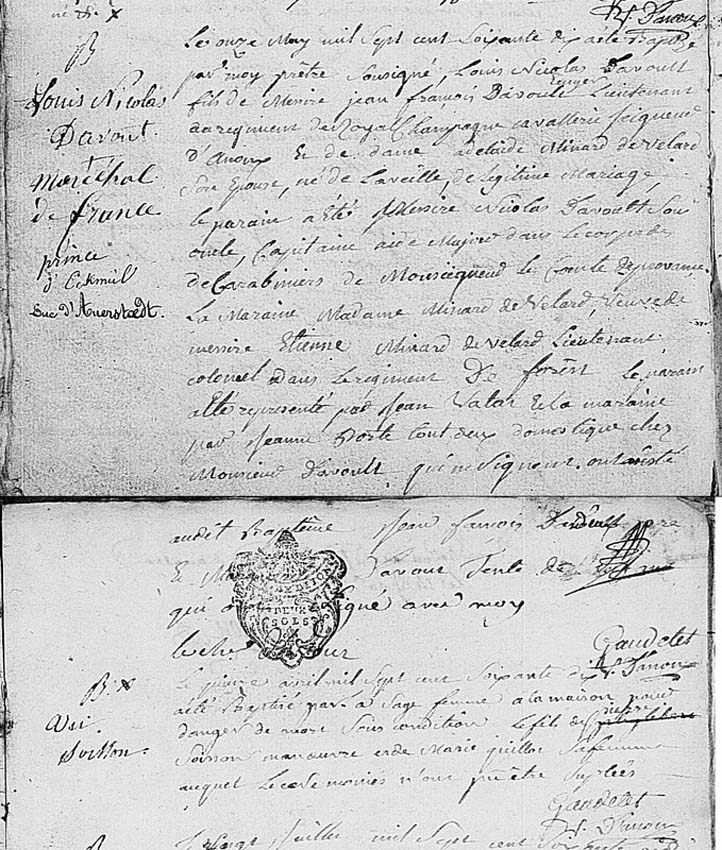 B
Louis Nicolas
Davout
Maréchal
de france
prince
d'Eckmül
Duc d'Auerstaedt.
Le onze May mil Sept cent Soixante dix a été Baptizé
par moy prêtre Sousigné, Louis Nicolas Davoult
fils de Messire jean francois Davoult Lieutenant
au regiment de Royal Champagne cavallerie Seigneur
D'Anoux Et de dame adelaide Minard de Velard
Son Epouse, né de Laveille, de Legitime Mariage,
le parain a été Messire Nicolas Davoult Son
oncle, Capitaine aide Major dans le corps de
de Carabiniers de Monseigneur le Comte de provance.
La Maraine Madame Minard de Velard, Veuve de
messire Etienne Minard de Velard Lieutenant
colonel dans Le regiment De forêst le parain
a été representé par Jean Valat Et la maraine
par Jeanne Porte tout deux domestique chez
Monsieur Davoult qui ne Signent. ont assisté
audit Baptême Jean francois Davoult pere
Davout Tente de
qui avec moy
Gaudelet
DEUX
SOLS
B.
Soisson.
Le avril mil Sept cent Soixante dix
a été Baptisé par La Sage femme a la maison pour
danger de mort Sous condition le fils de
Soisson manœuvre et de Marie Sa femme
auquel Les ceremonies n'ont pu être Suplées
Gaudelet
Juillet mil Sept cent